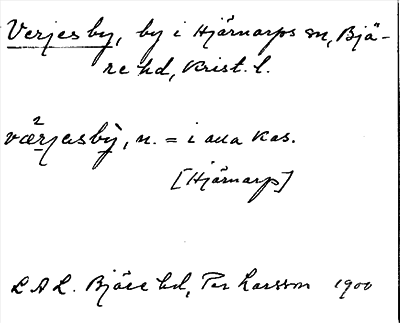 Verjesby, by i Hjärnarps sn, Bjä-
re hd, Krist. l.
væ²rjasbỳ, n. = i alla kas.
[Hjärnarp]
L A L. Bjäre hd, Per Larsson 1900